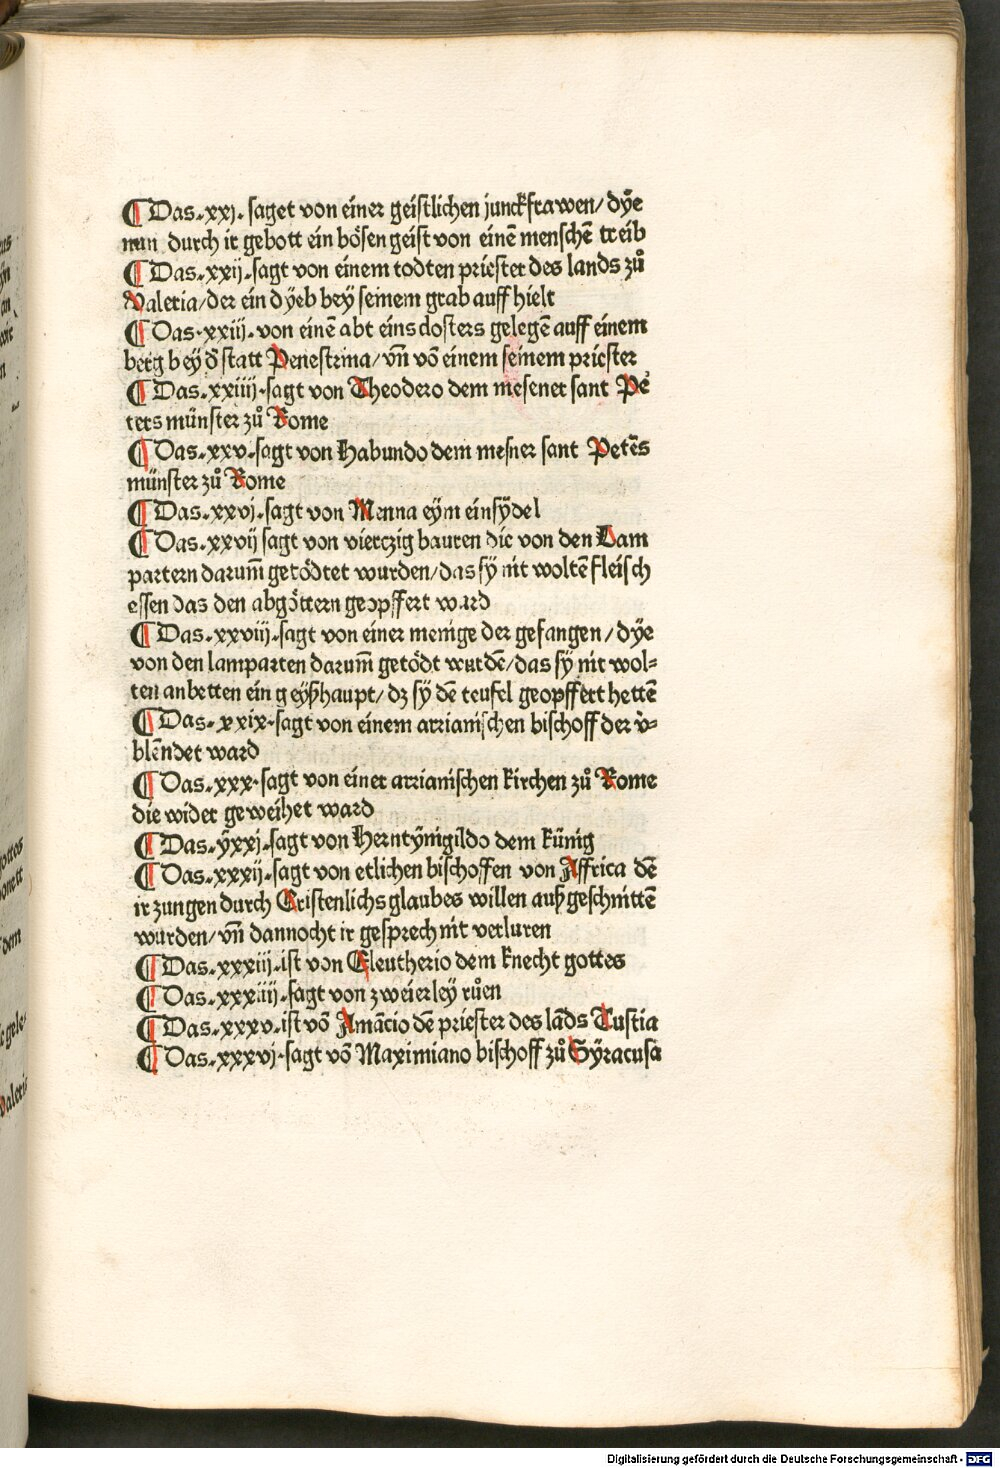 ¶ Das·xxj·saget von einer geistlichen junckfrawen/dÿe
nun durch ir gebott ein bösen geist von einē menschē treib
¶ Das·xxij·sagt von einem todten priester des lands zů
Valeria/der ein dÿeb beÿ seinem grab auff hielt
¶ Das·xxiij·von einē abt eins closters gelegē auff einem
berg beÿ d̄ statt Penestrina/vn̄ vō einem seinem priester
¶ Das·xxiiij·sagt von Theodero dem mesener sant Pe
ters münster zů Rome
¶ Das·xxv·sagt von Habundo dem mesner sant Peters
münster zů Rome
¶ Das·xxvj·sagt von Menna eÿm einsÿdel
¶ Das·xxvij sagt von vierczig bauren die von den Lam
partern darum̄ getödtet wurden/das sÿ nit woltē fleisch
essen das den abgöttern geopffert ward
¶ Das·xxviij·sagt von einer menige der gefangen/dÿe
von den lamparten darum̄ getödt wurdē/das sÿ nit wol=
ten anbetten ein geÿßhaupt/dz sÿ dē teufel geopffert hettē
¶ Das·xxix·sagt von einem arrianischen bischoff der v̄=
blendet ward
¶ Das·xxx·sagt von einer arrianischen kirchen zů Rome
die wider geweihet ward
¶ Das·ÿxxj·sagt von Herntÿnigildo dem künig
¶ Das·xxxij·sagt von etlichen bischoffen von Affrica dē
ir zungen durch Cristenlichs glaubes willen auß geschnittē
wurden/vn̄ dannocht ir gesprech nit verluren
¶ Das·xxxiij·ist von Eleutherio dem knecht gottes
¶ Das·xxxiiij·sagt von zweierleÿ růen
¶ Das·xxxv·ist vō Amācio dē priester des lāds Tustia
¶ Das·xxxvj·sagt vō Maximiano bischoff zů Sÿracusa
Digitalisierung gefördert durch die Deutsche Forschungsgemeinschaft - DFG